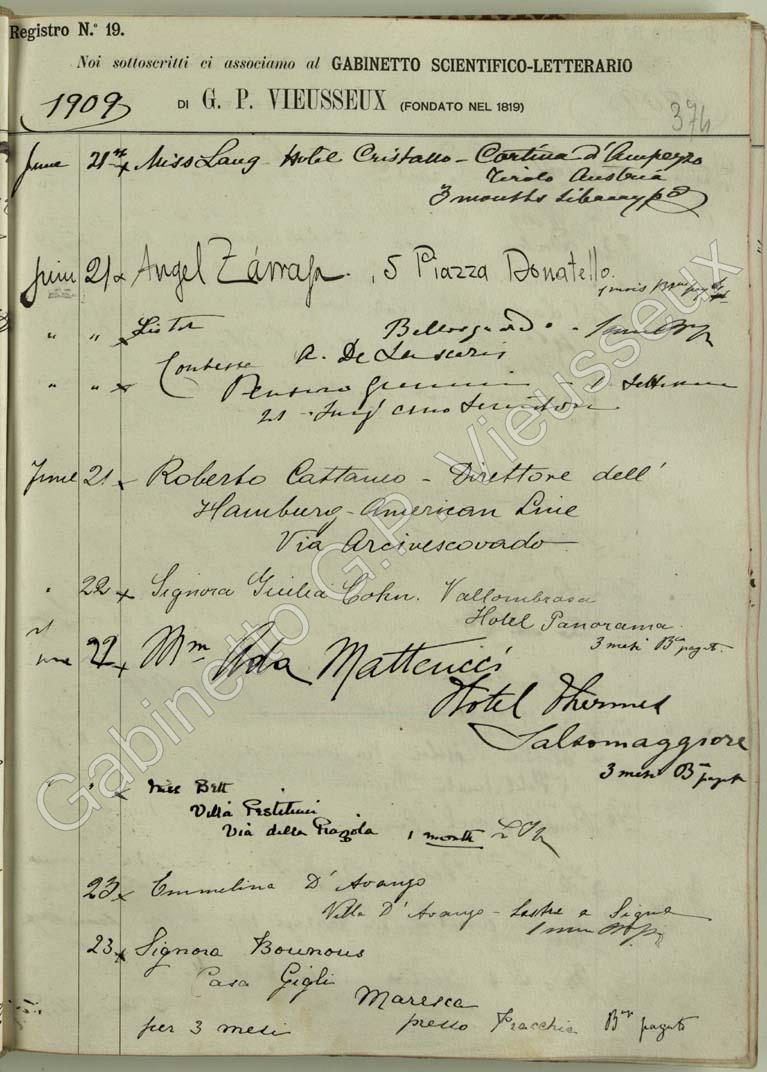 Registro N.º 19.
Noi sottoscritti ci associamo al GABINETTO SCIENTIFICO-LETTERARIO
1909
DI G. P. VIEUSSEUX (FONDATO NEL 1819)
374
June 21 x Miss Lang Hotel Cristallo - Cortina d'Ampezzo
Tirolo Austria
3 months Library pd
21 x Angel Zárraga, 5 Piazza Donatello.
1 mois
" " x Lister Bellosguardo -
Contessa A. De Lascaris
" " x Pensione - 1 Settimana
21
June 21 x Roberto Cattaneo - Direttore dell'
Hamburg-American Line
Via Arcivescovado
" 22 x Signora Giulia Cohn. Vallombrosa
Hotel Panorama.
3 mesi Bca pagati.
22 x Mm Ada Matteucci
Hotel Thermes
Salsomaggiore
3 mesi
" x Miss Bett
Villa
Via della Piazzola 1 month
23 x Emmelina D'Avanzo
Villa D'Avanzo - Lastra a Signa
23 x Signora Bounous
Casa Gigli
Maresca
per 3 mesi presso Pracchia pagati
Gabinetto G.P. Vieusseux